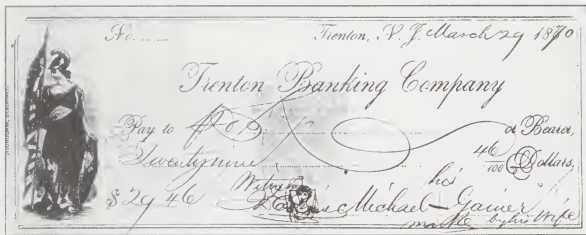 No.
Trenton, N. J. March 29 1870
Trenton Banking Company
Pay to or Bearer,
Twentynine 46/100 Dollars.
$29 46 Witness his
Michael Gainer
mark by his wife